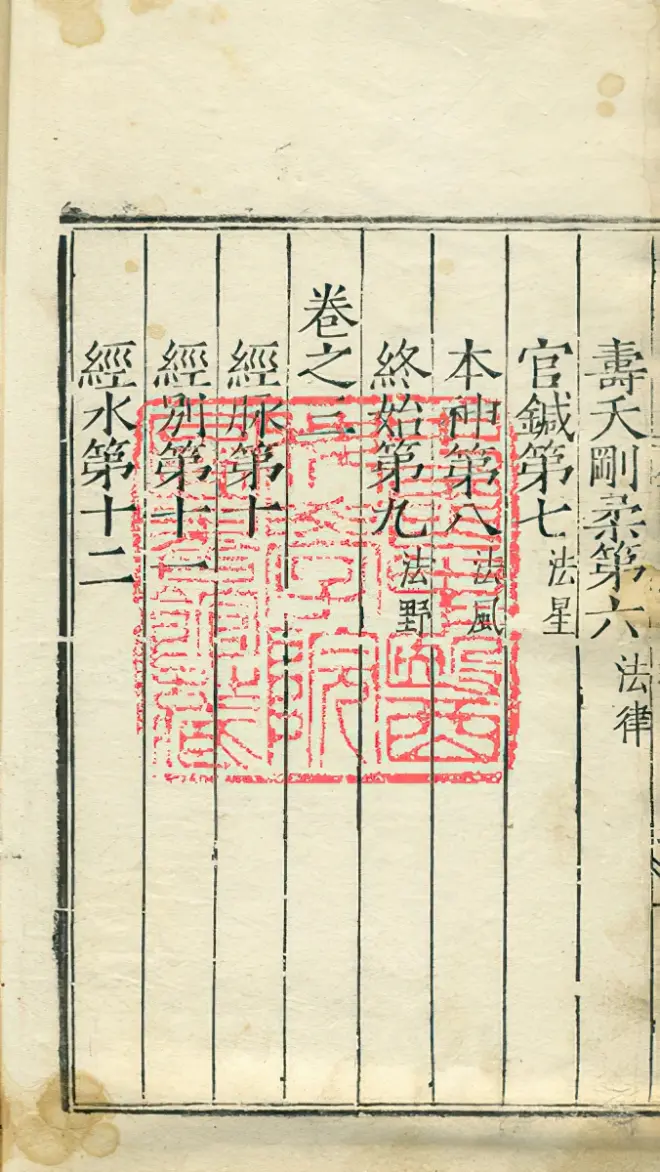 壽夭剛柔第六 法律
官鍼第七 法星
本神第八 法風
終始第九 法野
卷之三
經脉第十
經別第十一
經水第十二